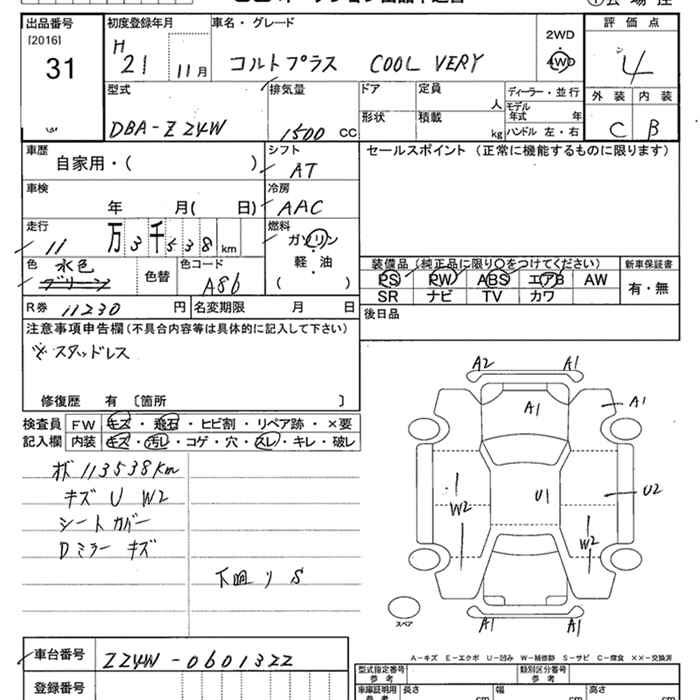 出品番号 [2016] 31
初度登録年月 H 21 11月
車名・グレード コルトプラス COOL VERY
2WD
・
4WD
評価点 4
外装 内装
C B
型式 DBA-Z24W
排気量 1500 CC
ドア
定員 人
ディーラー・並行
モデル年式 年
形状
積載 kg
ハンドル 左・右
車歴 自家用・( )
シフト AT
セールスポイント (正常に機能するものに限ります)
車検 年 月( 日)
冷房 AAC
走行 11万3千538km
燃料 ガソリン
軽・油
( )
色 水色 グリーン
色替
色コード A86
装備品(純正品に限り○をつけてください)
新車保証書
PS PW ABS エアB AW
有・無
SR ナビ TV カワ
R券 11230 円
名変期限 月 日
後日品
注意事項申告欄(不具合内容等は具体的に記入して下さい)
スタッドレス
修復歴 有〔箇所 〕
検査員記入欄
FW キズ・飛石・ヒビ割・リペア跡・×要
内装 キズ・汚レ・コゲ・穴・スレ・キレ・破レ
113538km
キズ U W2
シートカバー
Dミラーキズ
下廻り S
A2 A1
A1 A1
U1 U2
W2 W2
A1 A1
スペア
A−キズ E−エクボ U−凹ミ W−補修跡 S−サビ C−腐食 ××−交換済
車台番号 ZZ4W-0601322
型式指定番号 参考
類別区分番号 参考
登録番号
車庫証明用 参考
長さ cm
幅 cm
高さ cm